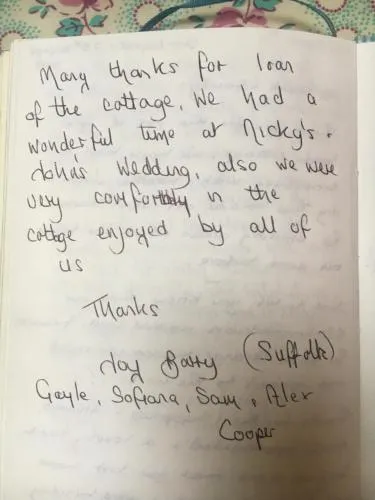 Many thanks for loan
of the cottage. We had a
wonderful time at Nicky's +
John's Wedding, also we were
very comfortably in the
cottage enjoyed by all of
us
Thanks
Joy Barry (Suffolk)
Gayle, Sofiana, Sam, Alex
Cooper